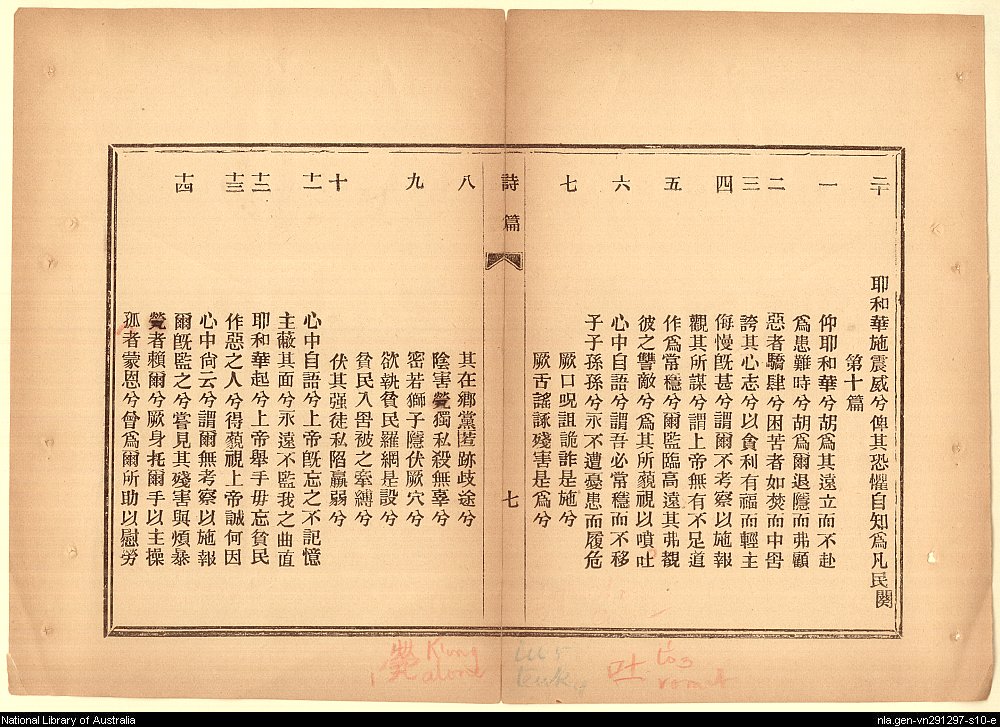 二十
耶和華施震威兮俾其恐懼自知爲凡民闋
第十篇
一 仰耶和華兮胡爲其遠立而不赴
爲患難時兮胡爲爾退隱而弗顧
二 惡者驕肆兮困苦者如焚而中罟
三 誇其心志兮以貪利有福而輕主
四 侮慢旣甚兮謂爾不考察以施報
觀其所謀兮謂上帝無有不足道
五 作爲常穩兮爾監臨高遠其弗覩
彼之讐敵兮爲其所藐視以噴吐
六 心中自語兮謂吾必常穩而不移
子子孫孫兮永不遭憂患而履危
七 厥口呪詛詭詐是施兮
厥舌謠諑殘害是爲兮
詩篇
七
八 其在鄉黨匿跡歧途兮
陰害煢獨私殺無辜兮
九 密若獅子隱伏厥穴兮
欲執貧民羅網是設兮
貧民入罟被之牽縛兮
十 伏其强徒私陷羸弱兮
十一 心中自語兮上帝旣忘之不記憶
主蔽其面兮永遠不監我之曲直
十二 耶和華起兮上帝舉手毋忘貧民
十三 作惡之人兮得藐視上帝誠何因
心中尙云兮謂爾無考察以施報
十四 爾旣監之兮嘗見其殘害與煩暴
煢者賴爾兮厥身托爾手以主操
孤者蒙恩兮曾爲爾所助以慰勞
煢 K'ung
alone
吐 t'o3
vomit
National Library of Australia
nla.gen-vn291297-s10-e